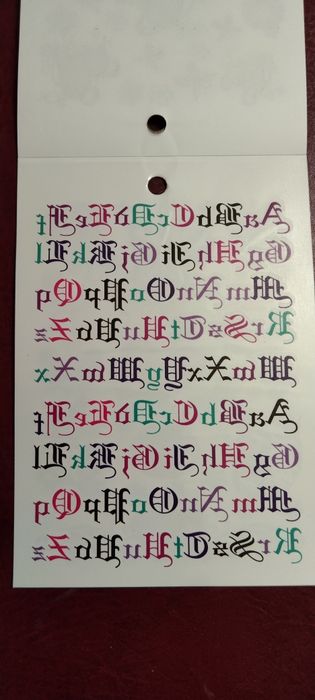 AaBbCcDdEeFf
GgHhIiJjKkLl
MmNnOoPpQq
RrSsTtUuVvZz
WwXxYyWwXx
AaBbCcDdEeFf
GgHhIiJjKkLl
MmNnOoPpQq
RrSsTtUuVvZz